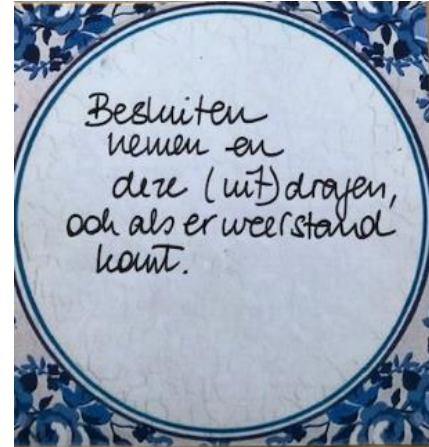 Besluiten
nemen en
deze (uit)dragen,
ook als er weerstand
komt.